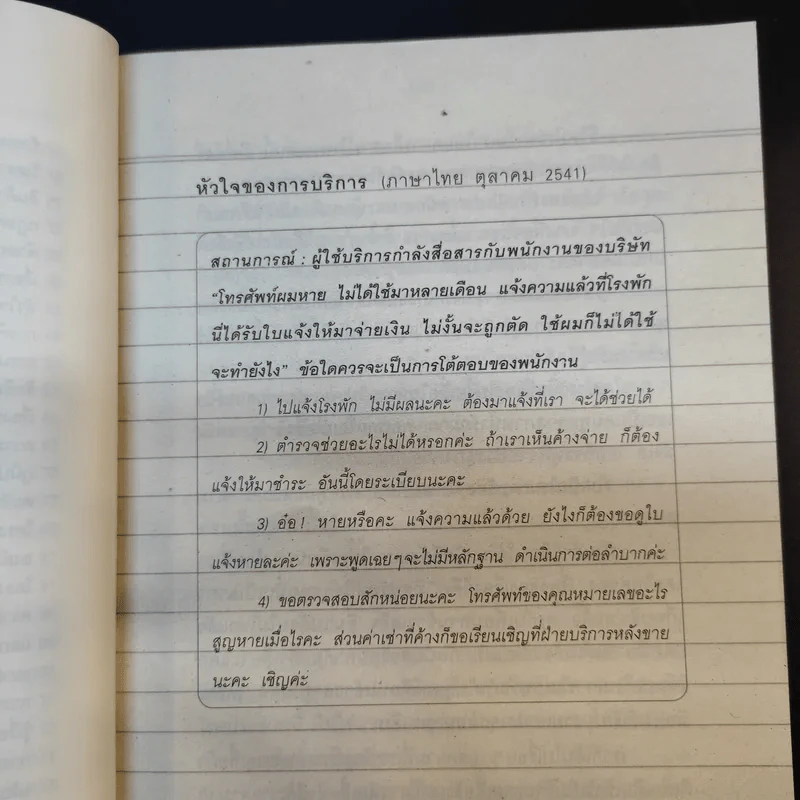 หัวใจของการบริการ (ภาษาไทย ตุลาคม 2541)
สถานการณ์ : ผู้ใช้บริการกำลังสื่อสารกับพนักงานของบริษัท
“โทรศัพท์ผมหาย ไม่ได้ใช้มาหลายเดือน แจ้งความแล้วที่โรงพัก
นี่ได้รับใบแจ้งให้มาจ่ายเงิน ไม่งั้นจะถูกตัด ใช้ผมก็ไม่ได้ใช้
จะทำยังไง” ข้อใดควรจะเป็นการโต้ตอบของพนักงาน
1) ไปแจ้งโรงพัก ไม่มีผลนะคะ ต้องมาแจ้งที่เรา จะได้ช่วยได้
2) ตำรวจช่วยอะไรไม่ได้หรอกค่ะ ถ้าเราเห็นค้างจ่าย ก็ต้อง
แจ้งให้มาชำระ อันนี้โดยระเบียบนะคะ
3) อ๋อ! หายหรือคะ แจ้งความแล้วด้วย ยังไงก็ต้องขอดูใบ
แจ้งหายละค่ะ เพราะพูดเฉยๆจะไม่มีหลักฐาน ดำเนินการต่อลำบากค่ะ
4) ขอตรวจสอบสักหน่อยนะคะ โทรศัพท์ของคุณหมายเลขอะไร
สูญหายเมื่อไรคะ ส่วนค่าเช่าที่ค้างก็ขอเรียนเชิญที่ฝ่ายบริการหลังขาย
นะคะ เชิญค่ะ